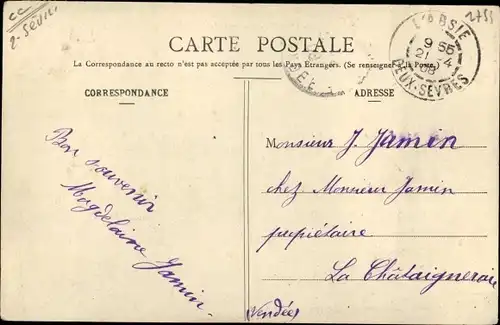 CC
2-Sevres
2755
CARTE POSTALE
La Correspondance au recto n'est pas acceptée par tous les Pays Etrangers. (Se renseigner à la Poste.)
L'ABSIE
9 55
21 4
08
DEUX-SEVRES
CORRESPONDANCE
ADRESSE
Bon souvenir
Magdelaine
Jamin
Monsieur J. Jamin
chez Monsieur Jamin
propiétaire
La Châtaigneraie
(Vendée)